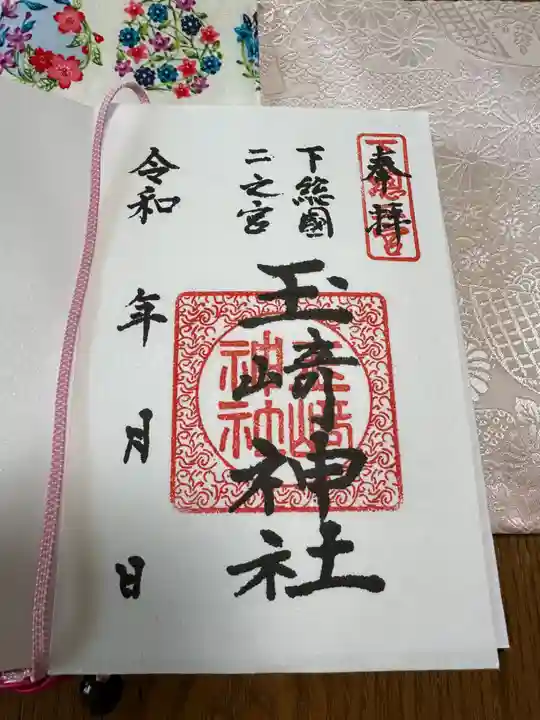 奉拝
下総國
二之宮
玉崎神社
令和 年 月 日
玉崎
神社